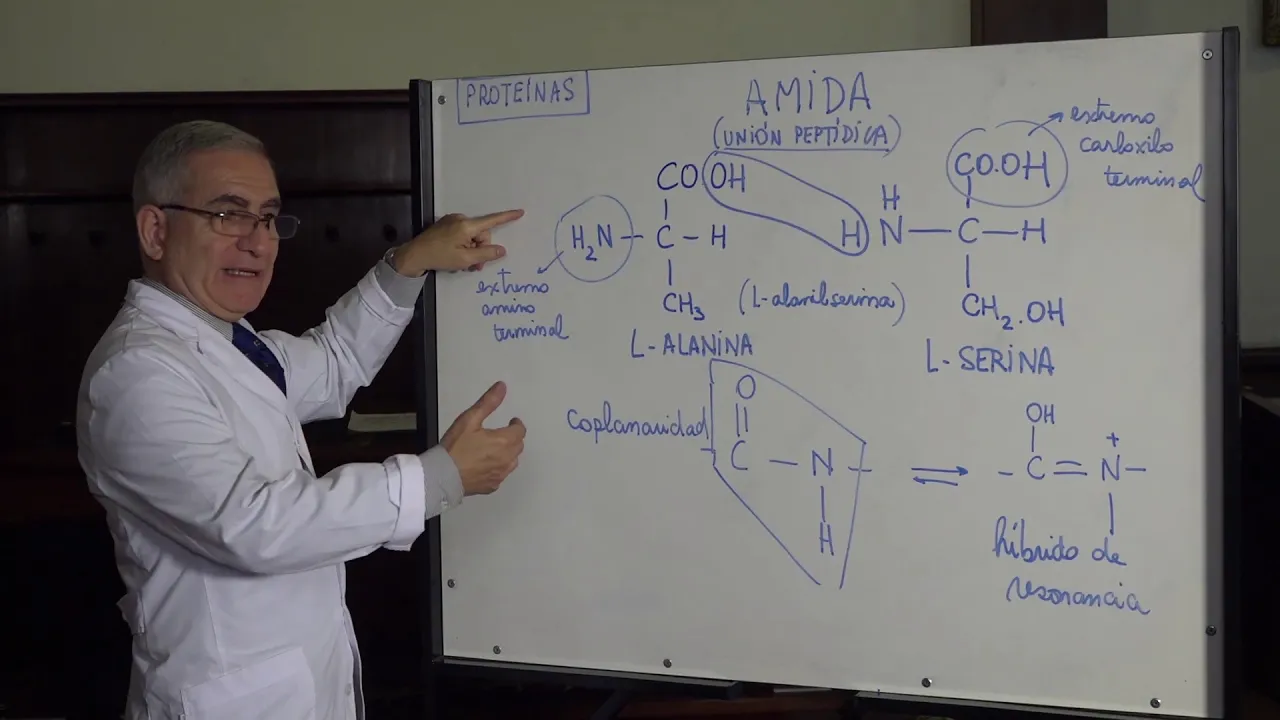 PROTEÍNAS
AMIDA
(UNIÓN PEPTÍDICA)
extremo
carboxilo
terminal
COOH
CO.OH
H
H₂N - C - H
H N - C - H
CH₃
(L-alanilserina)
CH₂.OH
extremo
amino
terminal
L-ALANINA
L-SERINA
O
OH
Coplanaridad
+
- C - N -
⇌
- C = N -
H
híbrido de
resonancia